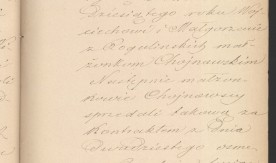 Dziesiątego roku Woj-
ciechowi i Małgorzacie
z Rogulinskich mał-
żonkom Chojnowskim
Następnie małżon-
kowie Chojnowscy
sprzedali takową za
Kontraktem z dnia
dwudziestego osme-